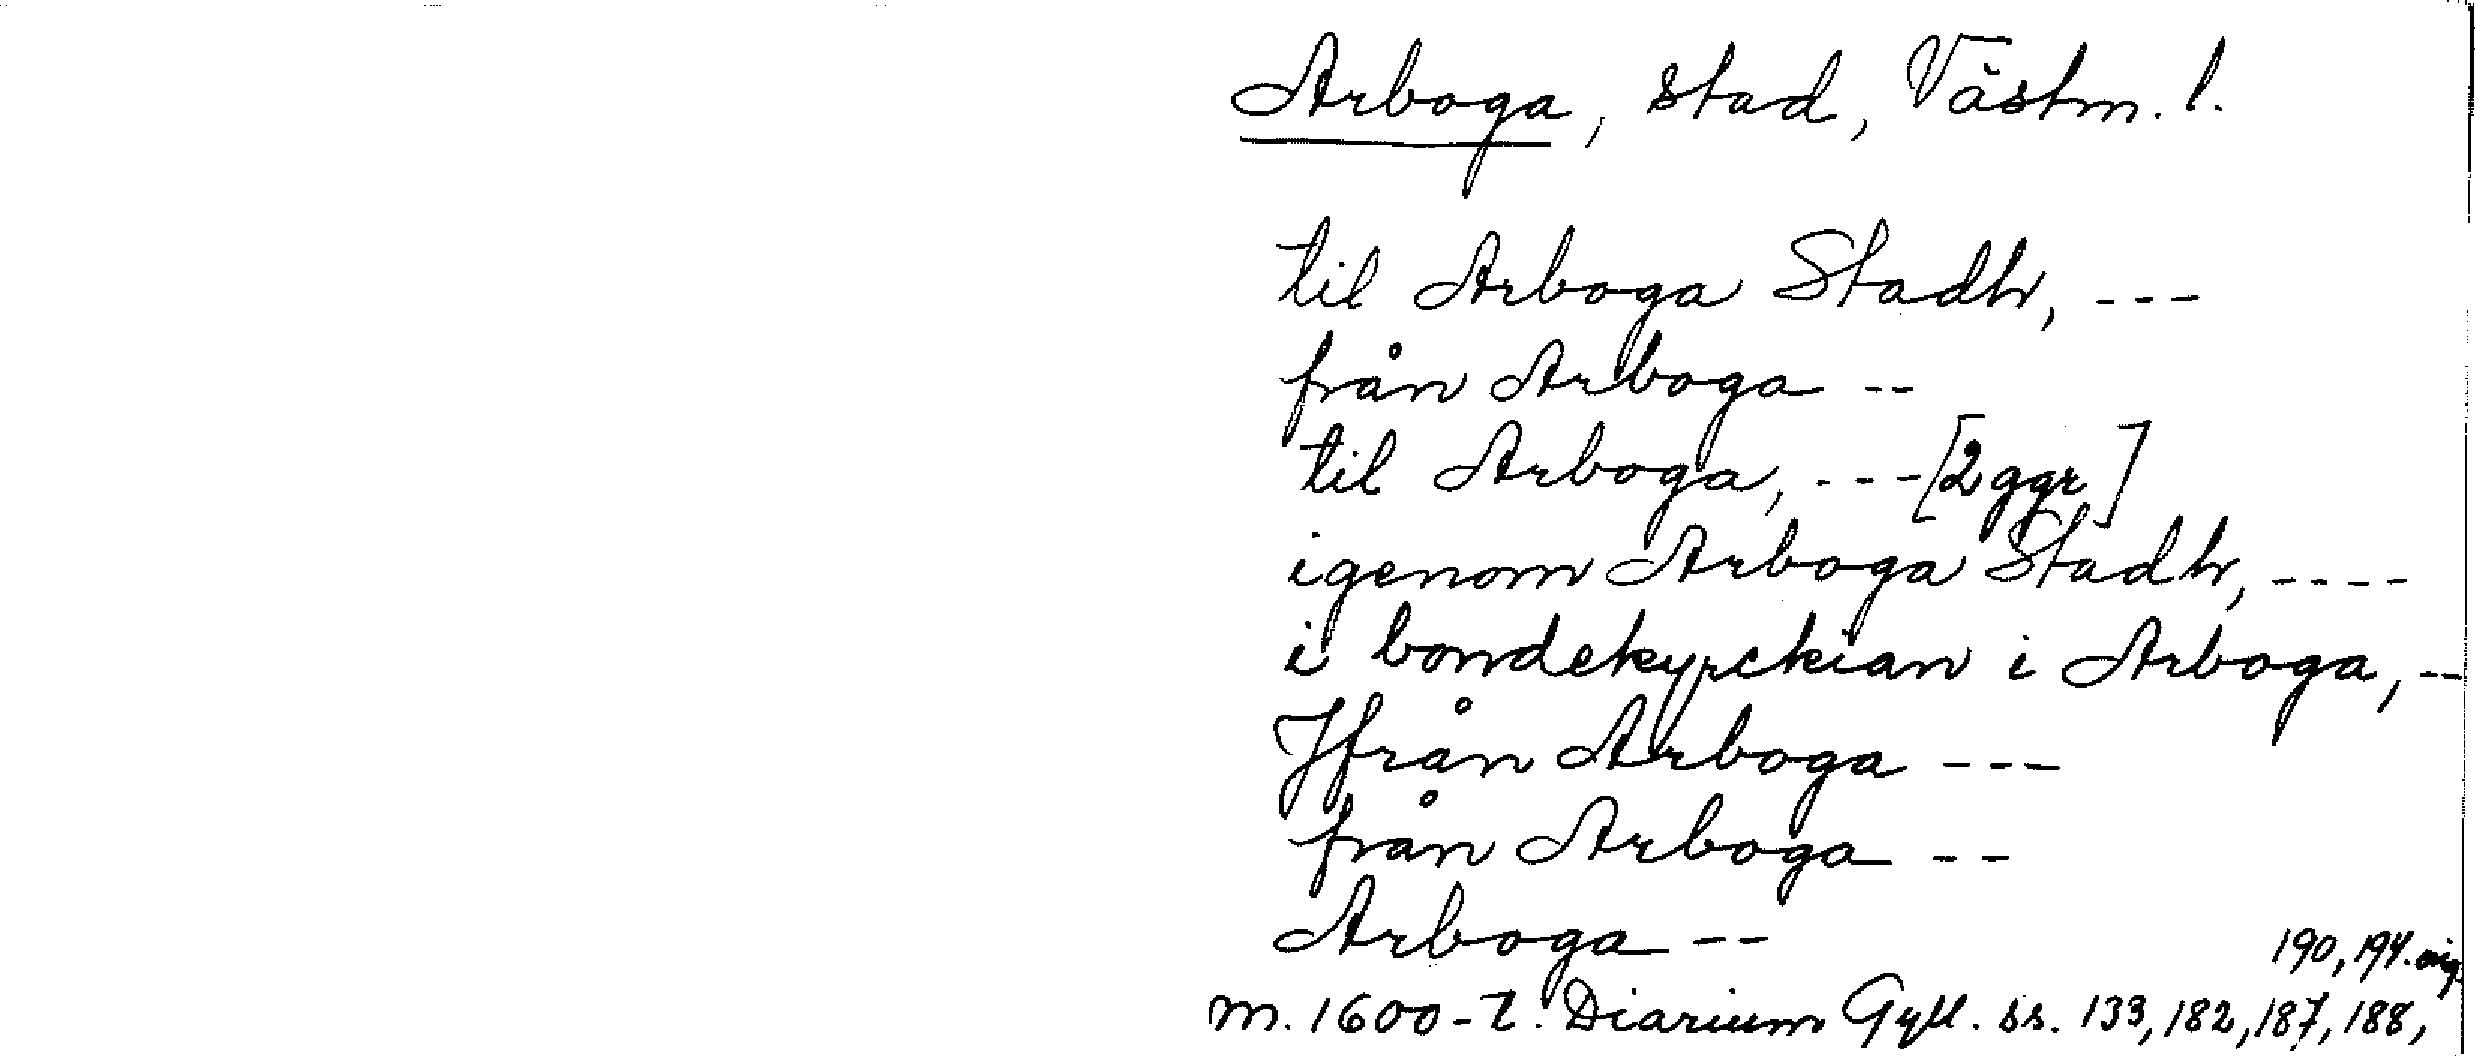 Arboga, stad, Västm. l.
til Arboga Stadh, ---
från Arboga --
til Arboga, --- [2 ggr]
igenom Arboga Stadh, ----
i bondekyrckian i Arboga, --
Jfrån Arboga ---
från Arboga --
Arboga --
190, 194. orig.
m. 1600-t. Diarium Gyll. ss. 133, 182, 187, 188,